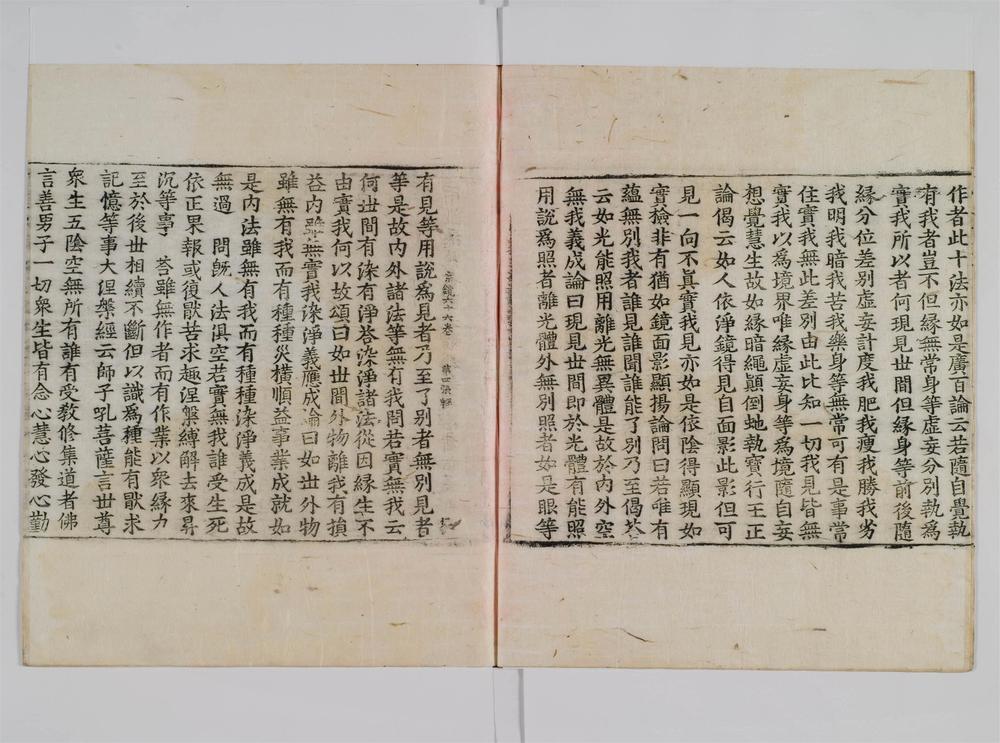 作者此十法亦如是廣百論云若隨自覺執
有我者豈不但緣無常身等虛妄分別執爲
實我所以者何現見世間但緣身等前後隨
緣分位差別虛妄計度我肥我瘦我勝我劣
我明我暗我苦我樂身等無常可有是事常
住實我無此差別由此比知一切我見皆無
實我以爲境界唯緣虛妄身等爲境隨自妄
想覺慧生故如緣暗繩顚倒虵執寶行王正
論偈云如人依淨鏡得見自面影此影但可
見一向不眞實我見亦如是依陰得顯現如
實檢非有猶如鏡面影顯揚論問曰若唯有
蘊無別我者誰見誰聞誰能了別乃至偈荅
云如光能照用離光無異體是故於內外空
無我義成論曰現見世間即於光體有能照
用說爲照者離光體外無別照者如是眼等
宗鏡六十六卷 第四張
有見等用說爲見者乃至了別者無別見者
等是故內外諸法等無有我問若實無我云
何世間有染有淨荅染淨諸法從因緣生不
由實我何以故頌曰如世間外物離我有損
益內雖無實我染淨義應成論曰如世外物
雖無有我而有種種災橫順益事業成就如
是內法雖無有我而有種種染淨義成是故
無過 問旣人法俱空若實無我誰受生死
依正果報或復猒苦求趣涅槃縛解去來昇
沉等事 荅雖無作者而有作業以衆緣力
至於後世相續不斷但以識爲種能有猒求
記憶等事大涅槃經云師子吼菩薩言世尊
衆生五陰空無所有誰有受敎修集道者佛
言善男子一切衆生皆有念心慧心發心勤